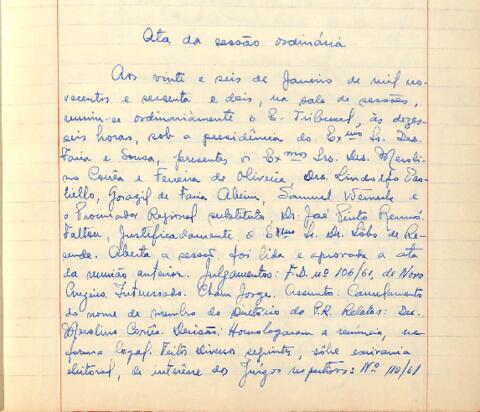 Ata da sessão ordinária
Aos vinte e seis de Janeiro de mil no-
vecentos e sessenta e dois, na sala de sessões,
reuniu-se ordinariamente o E. Tribunal, às dezes-
seis horas, sob a presidência do Exmo Sr. Des.
Faria e Sousa, presentes os Exmos Srs. Des. Meroli-
no Corrêa e Ferreira de Oliveira, Drs. Lindolfo
Gorazil de Faria Alvim, Samuel Werneck e
o Procurador Regional substituto, Dr. José Pinto
Faltou, justificadamente o Exmo Sr. Dr. Lobo de Re-
zende. Aberta a sessão, foi lida e aprovada a ata
da reunião anterior. Julgamentos: F.D. nº 106/61, de Novo
Cruzeiro. Interessado: Cham Jorge. Assunto: Cancelamento
do nome de membro do Diretório do P.R. Relator: Des.
Merolino Corrêa. Decisão: Homologaram a renúncia, na
forma legal. Feitos diversos seguintes, sôbre escrivania
eleitoral, de interêsse dos Juízos respectivos: Nº 110/61